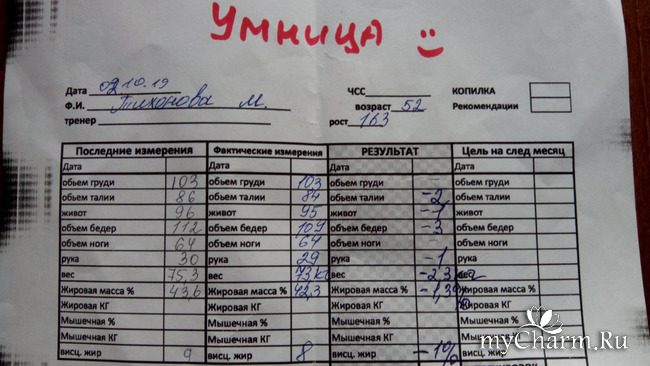 УМНИЦА
Дата 02.10.19 ЧСС КОПИЛКА
Ф.И. Тихонова М. возраст 52 Рекомендации
тренер рост 163
Последние измерения Фактические измерения РЕЗУЛЬТАТ Цель на след месяц
Дата Дата Дата Дата
обьем груди 103 обьем груди 103 обьем груди - обьем груди
обьем талии 86 обьем талии 84 обьем талии -2 обьем талии
живот 96 живот 95 живот -1 живот
обьем бедер 112 обьем бедер 109 обьем бедер -3 обьем бедер
обьем ноги 64 обьем ноги 64 обьем ноги - обьем ноги
рука 30 рука 29 рука -1 рука
вес 75,3 вес 73кг вес -2,3кг вес
Жировая масса % 43,6 Жировая масса % 42,3 Жировая масса % -1,3% Жировая масса %
Жировая КГ Жировая КГ Жировая КГ Жировая КГ
Мышечная % Мышечная % Мышечная % Мышечная %
Мышечная КГ Мышечная КГ Мышечная КГ Мышечная КГ
висц. жир 9 висц. жир 8 висц. жир -1% висц. жир
myCharm.Ru